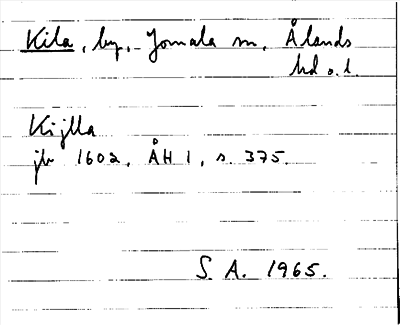 Kila, by, Jomala sn, Ålands
hd o. l.
Kijlla
jb 1602, ÅH 1, s. 375.
S. A. 1965.